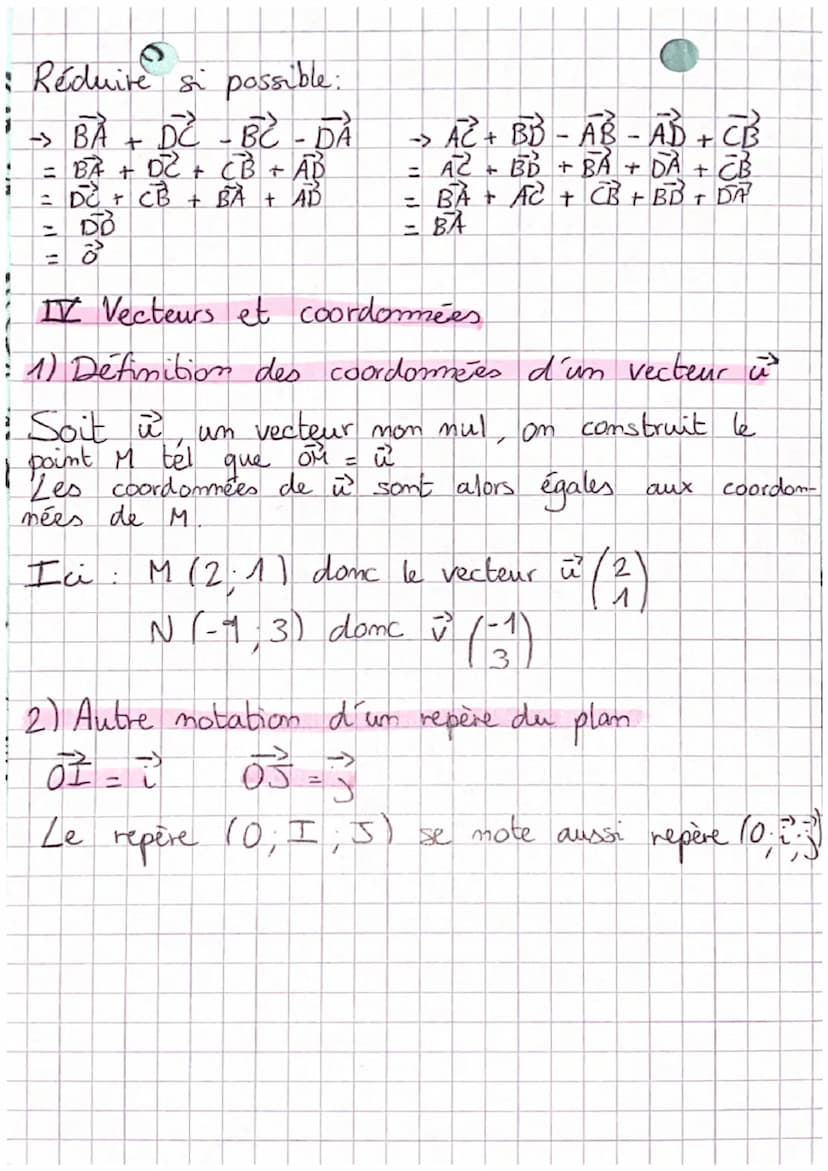 Réduire si possible:
→ $\vec{BA} + \vec{DC} - \vec{BC} - \vec{DA}$
= $\vec{BA} + \vec{DC} + \vec{CB} + \vec{AD}$
= $\vec{DC} + \vec{CB} + \vec{BA} + \vec{AD}$
= $\vec{DD}$
= $\vec{0}$
→ $\vec{AC} + \vec{BD} - \vec{AB} - \vec{AD} + \vec{CB}$
= $\vec{AC} + \vec{BD} + \vec{BA} + \vec{DA} + \vec{CB}$
= $\vec{BA} + \vec{AC} + \vec{CB} + \vec{BD} + \vec{DA}$
= $\vec{BA}$
IV Vecteurs et coordonnées
1) Définition des coordonnées d'un vecteur $\vec{u}$
Soit $\vec{u}$, un vecteur non nul, on construit le
point M tel que $\vec{OM} = \vec{u}$
Les coordonnées de $\vec{u}$ sont alors égales aux coordon-
nées de M.
Ici : M (2;1) donc le vecteur $\vec{u} \begin{pmatrix} 2 \\ 1 \end{pmatrix}$
N (-1;3) donc $\vec{v} \begin{pmatrix} -1 \\ 3 \end{pmatrix}$
2) Autre notation d'un repère du plan
$\vec{OI} = \vec{i}$ $\vec{OJ} = \vec{j}$
Le repère (O; I; J) se note aussi repère (O; $\vec{i}$; $\vec{j}$)